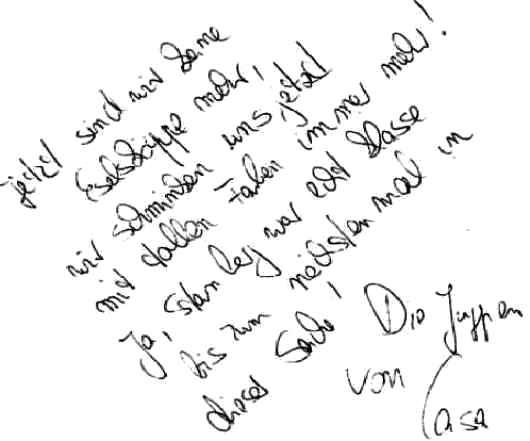 jetzt sind wir keine
Eselstruppe mehr,
wir schminken uns jetzt
mit tollen Farben immer mehr!
Ja, war echt klasse
bis zum nächsten mal in
dieser Sache!
Die
von Casa